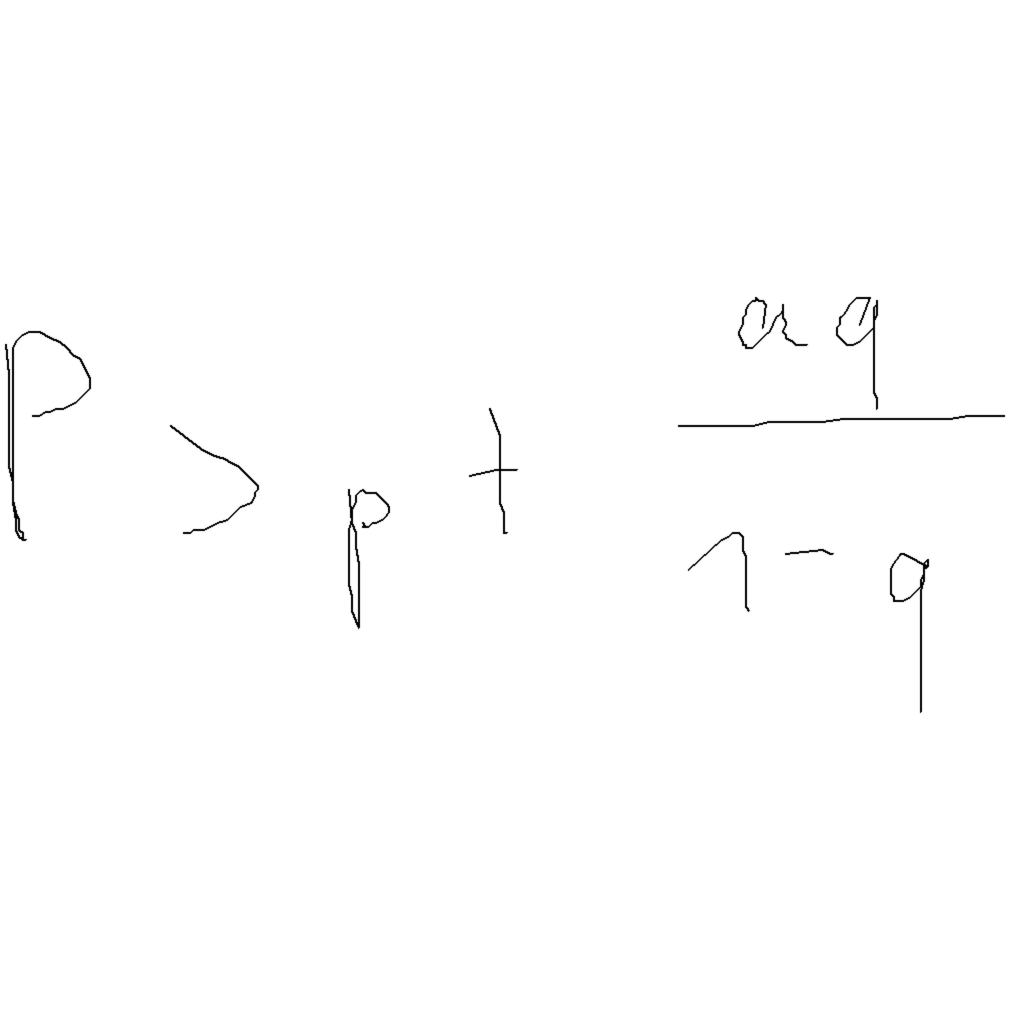 P > p + \frac{aq}{1-q}